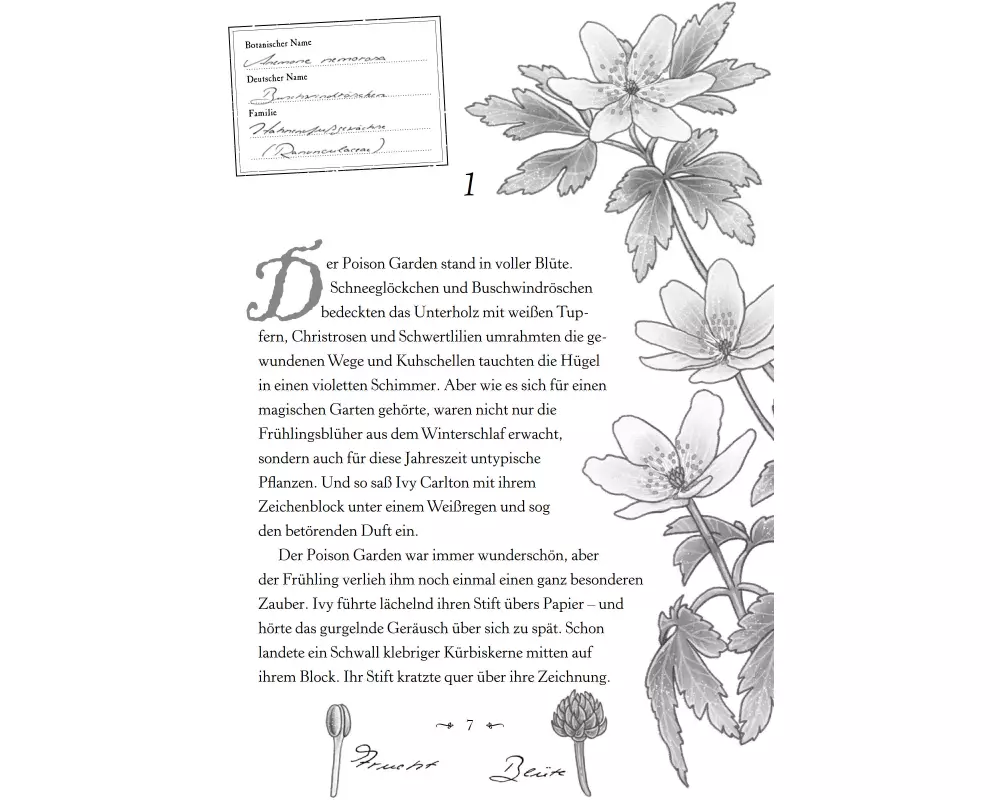 Botanischer Name
Anemone nemorosa
Deutscher Name
Buschwindröschen
Familie
Hahnenfußgewächse
(Ranunculaceae)
1
Der Poison Garden stand in voller Blüte.
Schneeglöckchen und Buschwindröschen
bedeckten das Unterholz mit weißen Tup-
fern, Christrosen und Schwertlilien umrahmten die ge-
wundenen Wege und Kuhschellen tauchten die Hügel
in einen violetten Schimmer. Aber wie es sich für einen
magischen Garten gehörte, waren nicht nur die
Frühlingsblüher aus dem Winterschlaf erwacht,
sondern auch für diese Jahreszeit untypische
Pflanzen. Und so saß Ivy Carlton mit ihrem
Zeichenblock unter einem Weißregen und sog
den betörenden Duft ein.
Der Poison Garden war immer wunderschön, aber
der Frühling verlieh ihm noch einmal einen ganz besonderen
Zauber. Ivy führte lächelnd ihren Stift übers Papier – und
hörte das gurgelnde Geräusch über sich zu spät. Schon
landete ein Schwall klebriger Kürbiskerne mitten auf
ihrem Block. Ihr Stift kratzte quer über ihre Zeichnung.
7
Frucht
Blüte